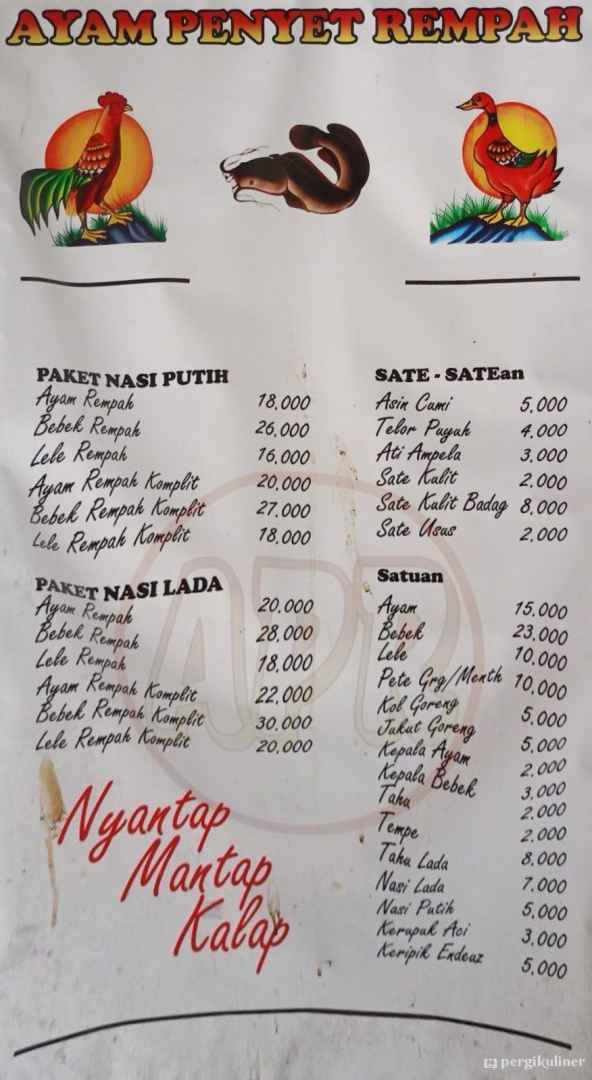 AYAM PENYET REMPAH
PAKET NASI PUTIH
Ayam Rempah 18,000
Bebek Rempah 26,000
Lele Rempah 16,000
Ayam Rempah Komplit 20,000
Bebek Rempah Komplit 27,000
Lele Rempah Komplit 18,000
PAKET NASI LADA
Ayam Rempah 20,000
Bebek Rempah 28,000
Lele Rempah 18,000
Ayam Rempah Komplit 22,000
Bebek Rempah Komplit 30,000
Lele Rempah Komplit 20,000
Nyantap
Mantap
Kalap
SATE - SATEan
Asin Cumi 5,000
Telor Puyuh 4,000
Ati Ampela 3,000
Sate Kulit 2,000
Sate Kulit Badag 8,000
Sate Usus 2,000
Satuan
Ayam 15,000
Bebek 23,000
Lele 10,000
Pete Grg/Menth 10,000
Kol Goreng 5,000
Jukut Goreng 5,000
Kepala Ayam 2,000
Kepala Bebek 3,000
Tahu 2,000
Tempe 2,000
Tahu Lada 8,000
Nasi Lada 7.000
Nasi Putih 5,000
Kerupuk Aci 3,000
Keripik Endeuz 5,000
pergikuliner